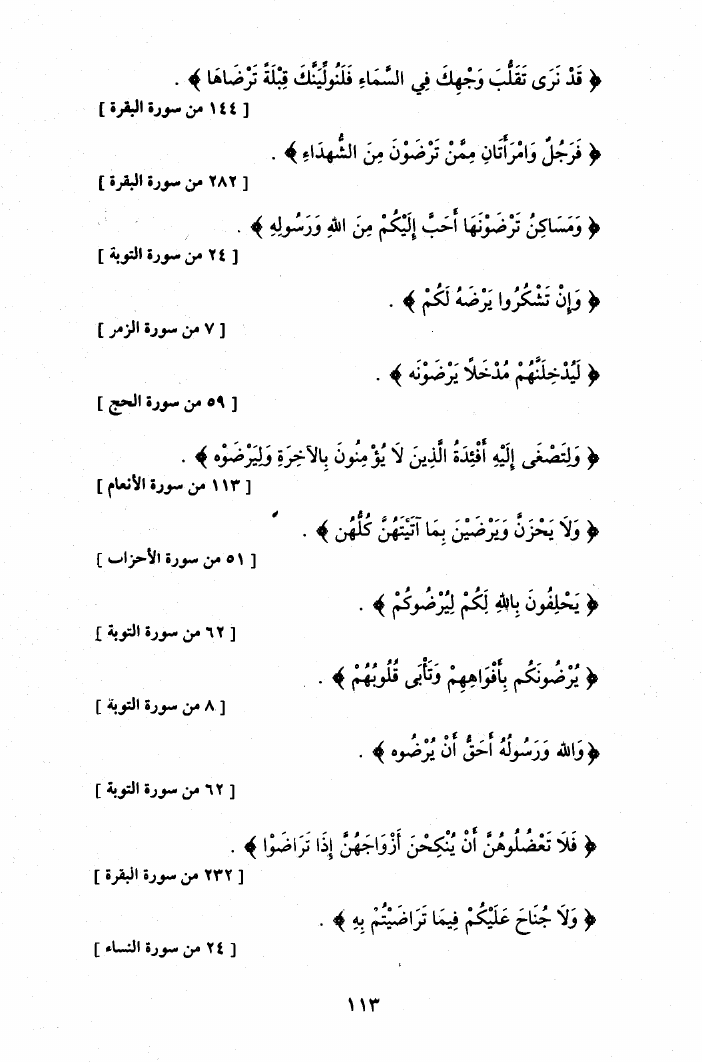 ﴿ قَدْ نَرَى تَقَلُّبَ وَجْهِكَ فِي السَّمَاءِ فَلَنُولِّيَنَّكَ قِبْلَةً تَرْضَاهَا ﴾ .
[ ١٤٤ من سورة البقرة ]
﴿ فَرَجُلٌ وَامْرَأَتَانِ مِمَّنْ تَرْضَوْنَ مِنَ الشُّهدَاءِ ﴾ .
[ ٢٨٢ من سورة البقرة ]
﴿ وَمَسَاكِنُ تَرْضَوْنَهَا أَحَبَّ إِلَيْكُمْ مِنَ اللهِ وَرَسُولِهِ ﴾ .
[ ٢٤ من سورة التوبة ]
﴿ وَإِنْ تَشْكُرُوا يَرْضَهُ لَكُمْ ﴾ .
[ ٧ من سورة الزمر ]
﴿ لَيُدْخِلَنَّهُمْ مُدْخَلًا يَرْضَوْنَه ﴾ .
[ ٥٩ من سورة الحج ]
﴿ وَلِتَصْغَى إِلَيْهِ أَفْئِدَةُ الَّذِينَ لَا يُؤْمِنُونَ بِالآخِرَةِ وَلِيَرْضَوْه ﴾ .
[ ١١٣ من سورة الأنعام ]
﴿ وَلَا يَحْزَنَّ وَيَرْضَيْنَ بِمَا آتَيْتَهُنَّ كُلُّهُن ﴾ .
[ ٥١ من سورة الأحزاب ]
﴿ يَحْلِفُونَ بِاللهِ لَكُمْ لِيُرْضُوكُمْ ﴾ .
[ ٦٢ من سورة التوبة ]
﴿ يُرْضُونَكُم بِأَفْوَاهِهِمْ وَتَأْبَى قُلُوبُهُمْ ﴾ .
[ ٨ من سورة التوبة ]
﴿ وَالله وَرَسُولُهُ أَحَقُّ أَنْ يُرْضُوه ﴾ .
[ ٦٢ من سورة التوبة ]
﴿ فَلَا تَعْضُلُوهُنَّ أَنْ يُنْكِحْنَ أَزْوَاجَهُنَّ إِذَا تَرَاضَوْا ﴾ .
[ ٢٣٢ من سورة البقرة ]
﴿ وَلَا جُنَاحَ عَلَيْكُمْ فِيمَا تَرَاضَيْتُمْ بِهِ ﴾ .
[ ٢٤ من سورة النساء ]
١١٣